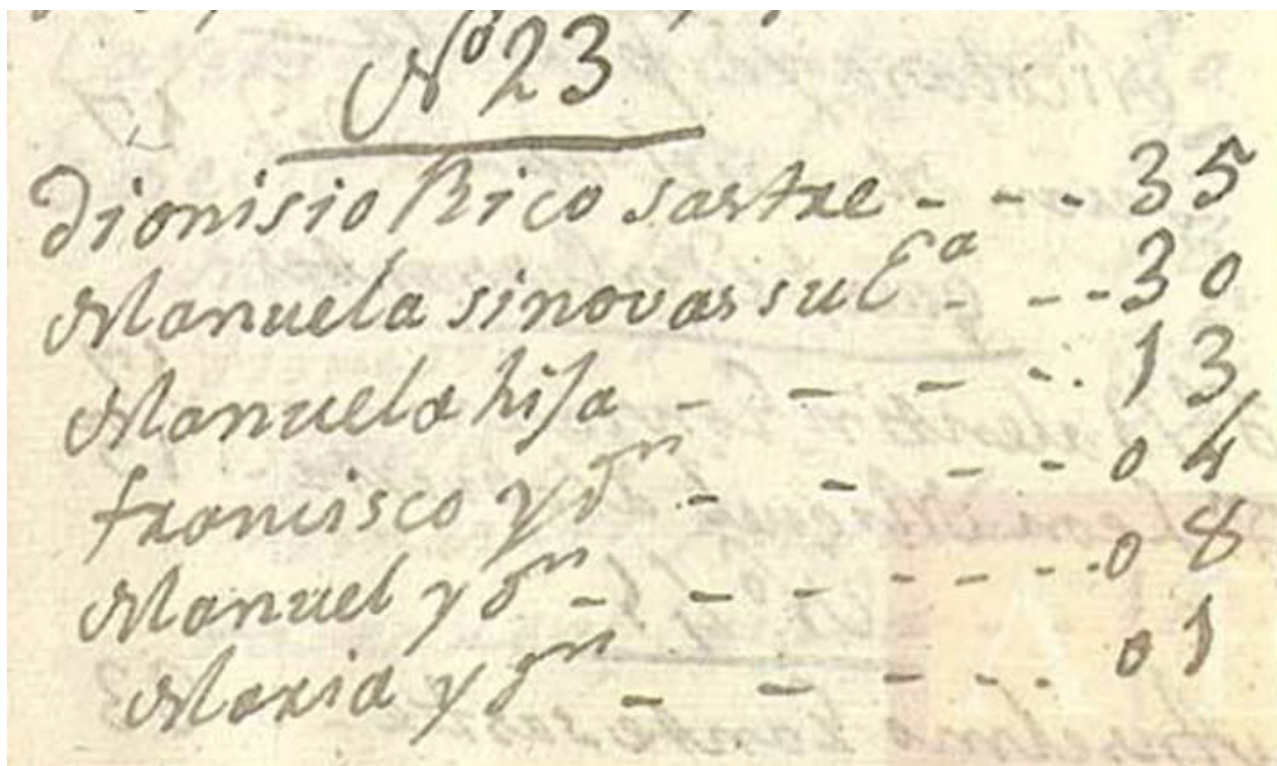 Nº 23
Dionisio Rico sastre - - - 35
Manuela sinovas su Eª - - - 30
Manuela hija - - - - - 13
francisco ydm - - - - 04
Manuel ydm - - - - - - 08
Maria ydm - - - - - 01